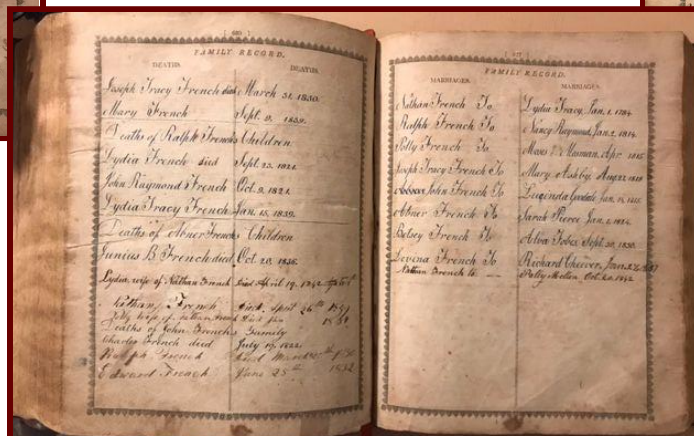 FAMILY RECORD.
DEATHS. DEATHS.
Joseph Tracy French died March 31. 1830.
Mary French Sept. 9. 1839.
Deaths of Ralph French's Children
Lydia French died Sept. 23. 1821.
John Raymond French Oct. 9. 1821.
Lydia Tracy French Jan. 15, 1832.
Deaths of Abner French's Children
Junius B French died Oct. 20. 1836.
Lydia, wife of Nathan French Died April 19. 1842
Nathan French Died. April 26th
Polly wife of Nathan French Died
Deaths of John French's Family
Charles French died July 19. 1822.
Ralph French died March
Edward French June 25th
FAMILY RECORD.
MARRIAGES. MARRIAGES.
Nathan French To Lydia Tracy, Jan. 1. 1784
Ralph French To Nancy Raymond, Jan. 2. 1814.
Polly French To Moses Apr. 1815
Joseph Tracy French To Mary Ashby Aug 22. 1819
John French To Lucinda Jan.
Abner French To Sarah Pierce Jan. 1.
Betsey French To Alva Fobes Sept. 30. 1830.
Lovina French To Richard Cheever, Jan.
Nathan French to Polly Oct. 20. 1842.